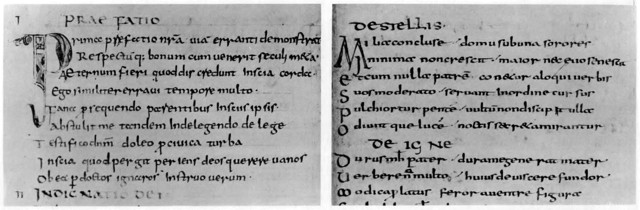 I PRAEFATIO
Prima prefectio nra uia erranti demonstrat
Respectuq; bonum cum uenerit seculi meta
Aeternum fieri quod discredunt Inscia corda
Ego similiter erraui tempore multo
Fana prosequendo parentibus Insciis ipsis
Abstuli me tandem Inde legendo de lege
Testificor dnm doleo p ciuica turba
Inscia quod pergit pergens deos querere uanos
Ob ea pdoctos ignaros Instruo uerum
II INDIGNATIO DEI
De stellis
Milia concluse domu sub una sorores
Minima non crescit maior nec euo senescit
Et cum nulla patrem conetur aloqui uerbis
Suos moderato seruant In ordine cursus
Pulchior turpente uultum non discipit ulla
Odiunt que luce noctis secreta mirantur
De igne
Durus mihi pater dura me generat mater
Uerbere multo huius de uiscere fundor
Modica platus feror a uentre figura